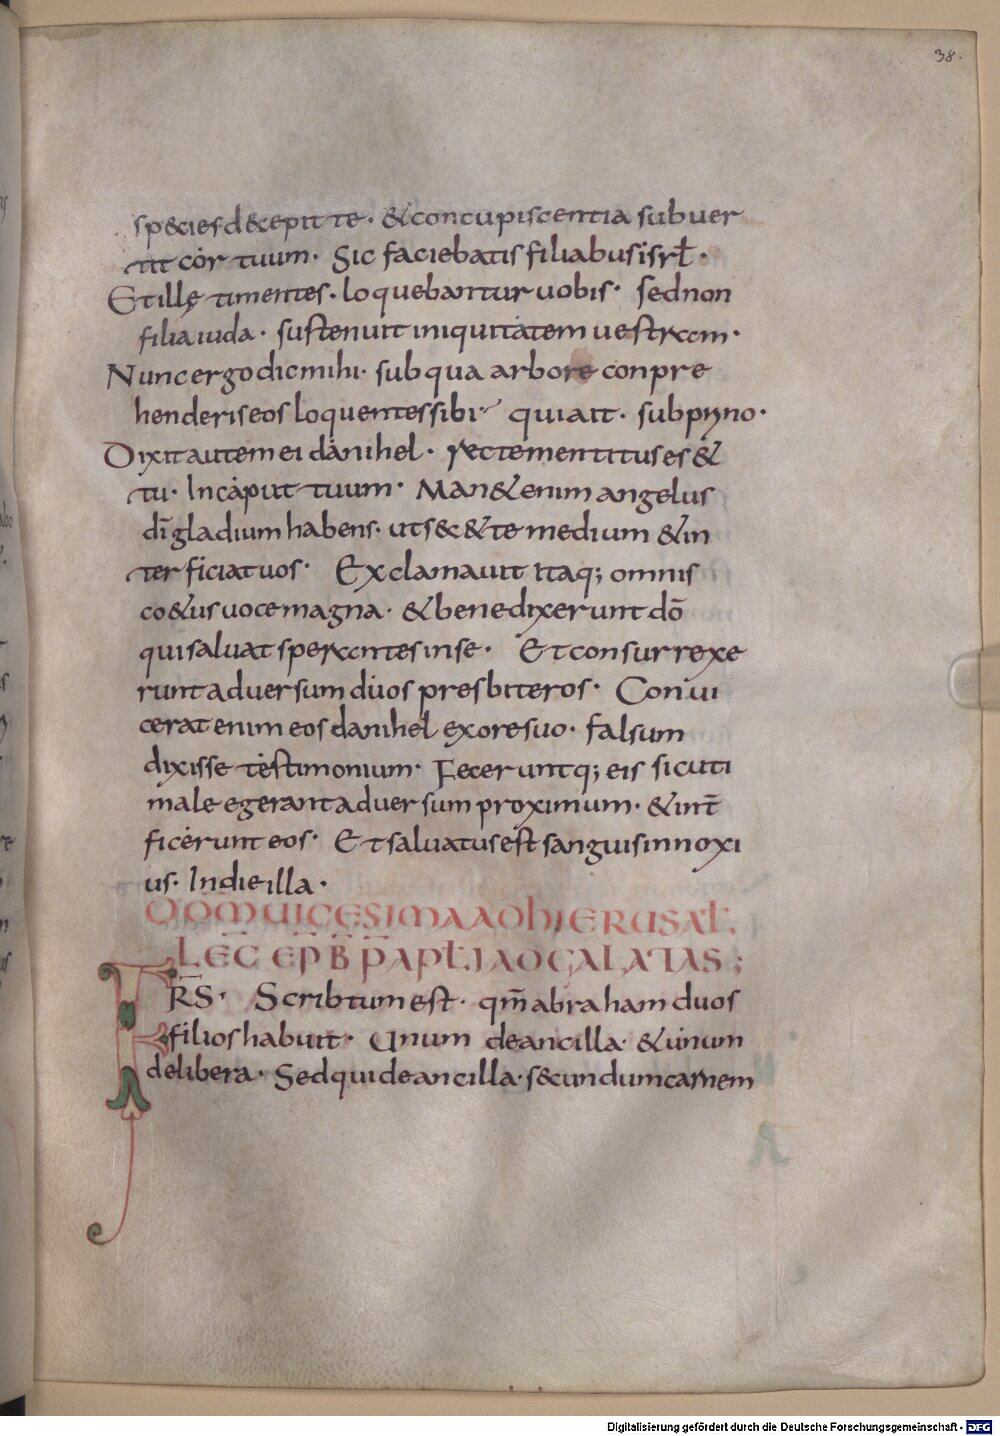 38.
species decepit te· & concupiscentia subuer
tit cor tuum· Sic faciebatis filiabus isrł·
Et illę timentes· loquebantur uobis· sed non
filia iuda· sustenuit iniquitatem uestram·
Nunc ergo dic mihi· sub qua arbore conpre
henderis eos loquentes sibi· qui ait· sub pyno·
Dixit autem ei danihel· recte mentitus es &
tu· In caput tuum· Man& enim angelus
dī gladium habens· ut sec& te medium & in
terficiat uos· Exclamauit itaq; omnis
co&us uoce magna· & benedixerunt dō
qui saluat sperantes in se· Et consurrexe
runt aduersum duos presbiteros· Conui
cerat enim eos danihel ex ore suo· falsum
dixisse testimonium· Feceruntq; eis sicuti
male egerant aduersum proximum· & int̄
ficerunt eos· Et saluatus est sanguis innoxi
us· In die illa·
DOM̄ UICESIMA AD HIERUSAŁ.
LEC̄ EP̄ B̄ P̄ APŁI AD GALATAS;
FRS̄· Scribtum est· qm̄ abraham duos
filios habuit· Unum de ancilla· & unum
de libera· Sed qui de ancilla· secundum carnem
Digitalisierung gefördert durch die Deutsche Forschungsgemeinschaft - DFG